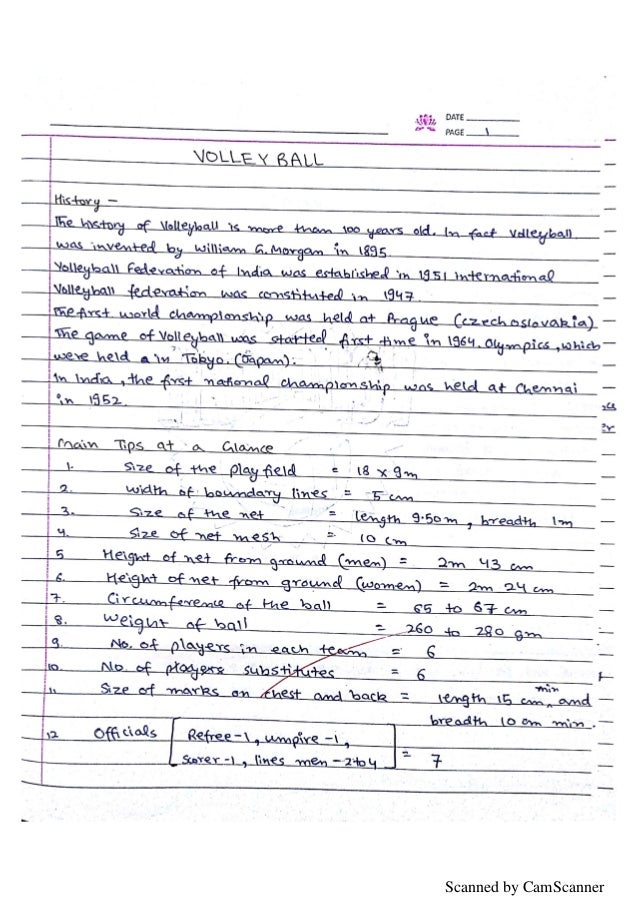 DATE
PAGE 1
VOLLEY BALL
History -
The history of Volleyball is more than 100 years old. In fact Volleyball
was invented by William G. Morgan in 1895
Volleyball Federation of India was established in 1951 International
Volleyball federation was constituted in 1947
The first world championship was held at Prague (czechoslovakia)
The game of Volleyball was started first time in 1964. Olympics, which
were held in Tokyo. (Japan).
In India, the first national championship was held at Chennai
in 1952.
Main Tips at a Glance
1. Size of the play field = 18 x 9m
2. width of boundary lines = 5 cm
3. Size of the net = length 9.50m, breadth 1m
4. Size of net mesh = 10 cm
5 Height of net from ground (men) = 2m 43 cm
6. Height of net from ground (women) = 2m 24 cm
7. Circumference of the ball = 65 to 67 cm
8. Weight of ball = 260 to 280 gm
9. No. of players in each team = 6
10. No of players substitutes = 6
11. Size of marks on chest and back = length 15 cm min, and
breadth 10 cm min.
12 Officials Refree-1, umpire-1,
Scorer-1, lines men - 2 to 4 = 7
Scanned by CamScanner